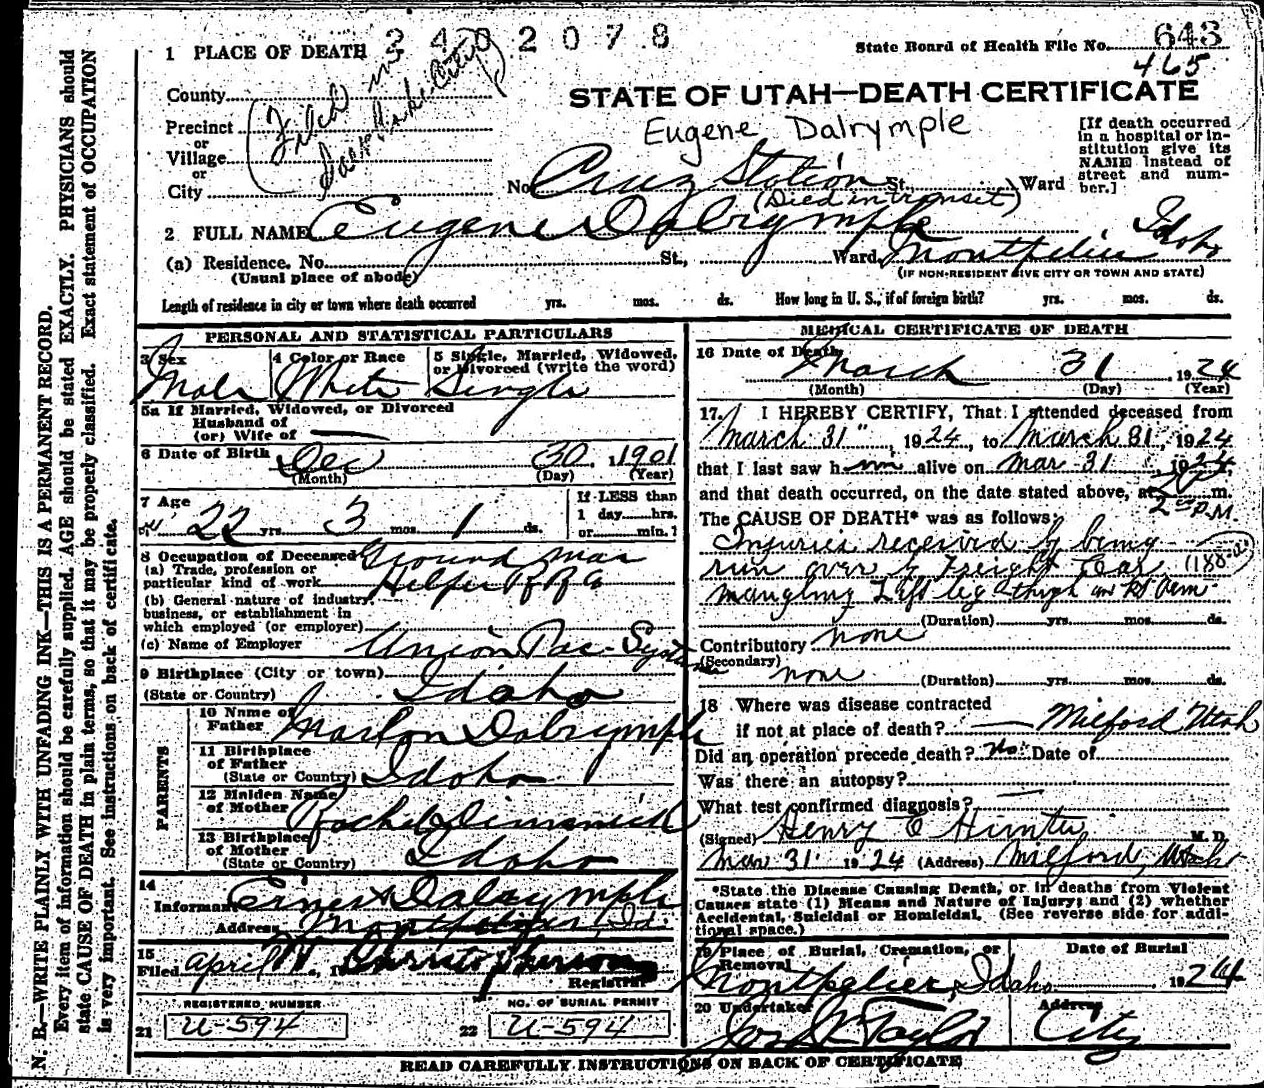 2402078
State Board of Health File No. 643
465
1 PLACE OF DEATH
STATE OF UTAH—DEATH CERTIFICATE
County
Filed in
Salt Lake City
Eugene Dalrymple
Precinct
or
Village
or
City
[If death occurred
in a hospital or in-
stitution give its
NAME instead of
street and num-
ber.]
No. Cruz Station St., Ward
(Died in transit)
2 FULL NAME Eugene Dalrymple
(a) Residence. No. St., Ward, Montpelier Idaho
(Usual place of abode)
(IF NON-RESIDENT GIVE CITY OR TOWN AND STATE)
Length of residence in city or town where death occurred yrs. mos. ds. How long in U. S., if of foreign birth? yrs. mos. ds.
PERSONAL AND STATISTICAL PARTICULARS
3 Sex
Male
4 Color or Race
White
5 Single, Married, Widowed,
or Divorced (write the word)
Single
5a If Married, Widowed, or Divorced
Husband of
(or) Wife of
6 Date of Birth Dec 30, 1901
(Month) (Day) (Year)
7 Age
22 yrs. 3 mos. 1 ds.
If LESS than
1 day hrs.
or min.?
8 Occupation of Deceased Ground man
(a) Trade, profession or
particular kind of work Helper
(b) General nature of industry,
business, or establishment in
which employed (or employer)
(c) Name of Employer Union Pac. System
9 Birthplace (City or town)
(State or Country) Idaho
PARENTS
10 Name of
Father Marlon Dalrymple
11 Birthplace
of Father
(State or Country) Idaho
12 Maiden Name
of Mother Rachel Dimmick
13 Birthplace
of Mother
(State or Country) Idaho
14
Informant Ernest Dalrymple
Address Montpelier, Id.
15
Filed April Christopherson
Registrar
REGISTERED NUMBER
21 U-594
NO. OF BURIAL PERMIT
22 U-594
MEDICAL CERTIFICATE OF DEATH
16 Date of Death
March 31, 1924
(Month) (Day) (Year)
17. I HEREBY CERTIFY, That I attended deceased from
March 31", 1924, to March 31, 1924
that I last saw him alive on Mar 31, 1924
and that death occurred, on the date stated above, at m.
2 50 P.M
The CAUSE OF DEATH* was as follows:
Injuries received by being
run over by Freight Car
mangling Left leg & thigh and Rt Arm
(Duration) yrs. mos. ds.
Contributory none
(Secondary)
none (Duration) yrs. mos. ds.
18 Where was disease contracted
if not at place of death? Milford Utah
Did an operation precede death? No. Date of
Was there an autopsy?
What test confirmed diagnosis?
(Signed) Henry Hunter M. D.
Mar 31. 1924 (Address) Milford, Utah
*State the Disease Causing Death, or in deaths from Violent
Causes state (1) Means and Nature of Injury; and (2) whether
Accidental, Suicidal or Homicidal. (See reverse side for addi-
tional space.)
19 Place of Burial, Cremation, or
Removal
Date of Burial
Montpelier, Idaho 1924
20 Undertaker
Jos Wm Taylor
Address
City
READ CAREFULLY INSTRUCTIONS ON BACK OF CERTIFICATE
N. B.—WRITE PLAINLY WITH UNFADING INK—THIS IS A PERMANENT RECORD.
Every item of information should be carefully supplied. AGE should be stated EXACTLY. PHYSICIANS should
state CAUSE OF DEATH in plain terms, so that it may be properly classified. Exact statement of OCCUPATION
is very important. See instructions on back of certificate.